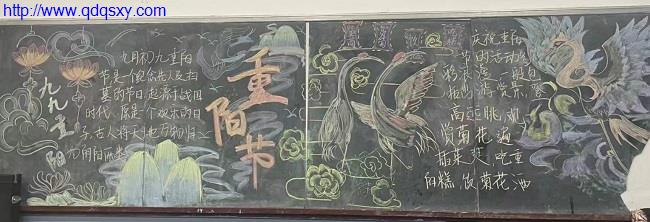 http://www.qdqsxy.com
九九重阳
九月初九重阳
节是一个纪念先人及扫
墓的节日,起源于战国
时代,原是个欢乐的日
子。古人将天
重阳节
庆祝重阳
节的活动
一般包
括出游赏景、登
高远眺、观
赏菊花、遍
插茱萸、吃重
阳糕、饮菊花酒